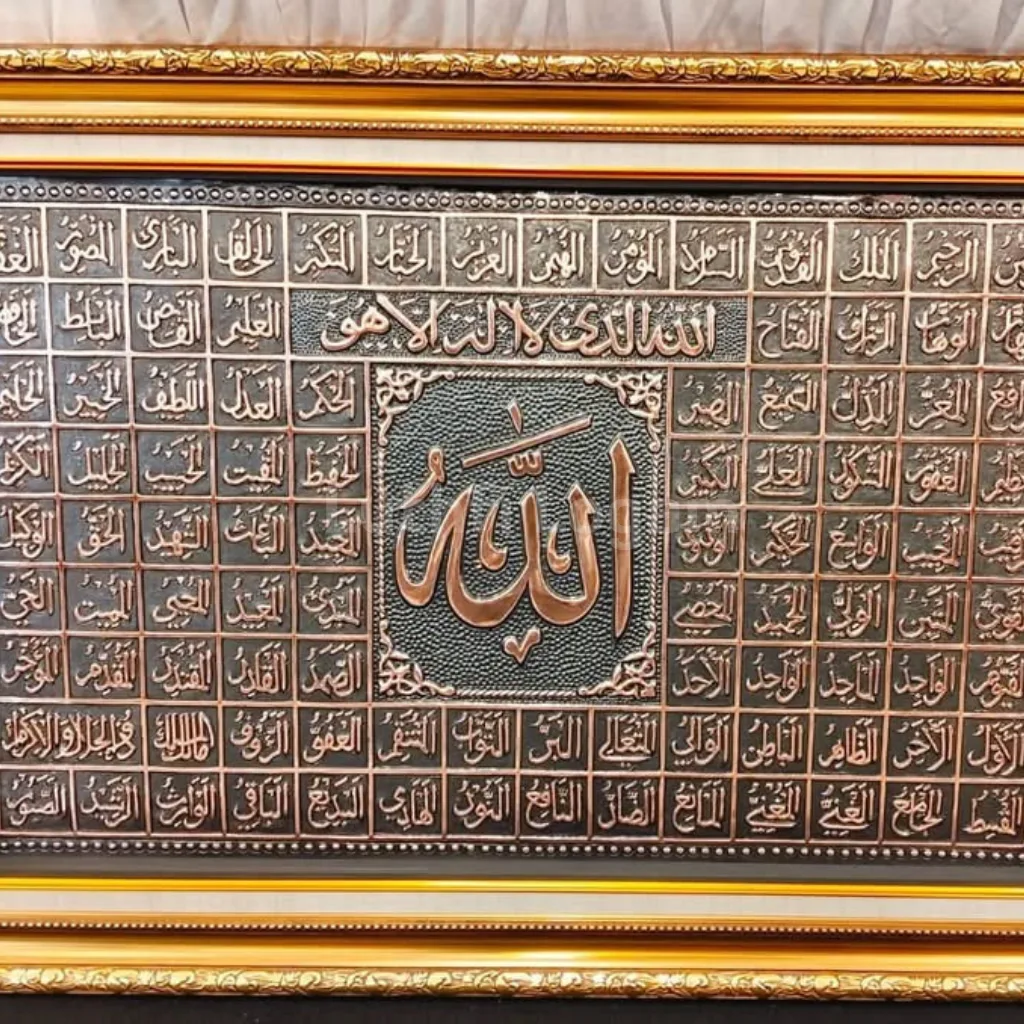 الرحيم الملك القدوس السلام المؤمن المهيمن العزيز الجبار المتكبر الخالق البارئ المصور
الوهاب الرزاق الفتاح الله الذي لا اله الا هو العليم القابض الباسط
المعز المذل السميع البصير الحكم العدل اللطيف الخبير الحليم
الله
الغفور الشكور العلي الكبير الحفيظ المقيت الحسيب الجليل الكريم
المجيب الواسع الحكيم الودود المجيد الباعث الشهيد الحق الوكيل
القوي المتين الولي الحميد المحصي المبدئ المعيد المحيي المميت الحي
القيوم الواجد الماجد الواحد الأحد الصمد القادر المقتدر المقدم المؤخر
الأول الآخر الظاهر الباطن الوالي المتعالي البر التواب المنتقم العفو الرؤوف مالك الملك ذو الجلال والاكرام
المقسط الجامع الغني المغني المانع الضار النافع النور الهادي البديع الباقي الوارث الرشيد الصبور